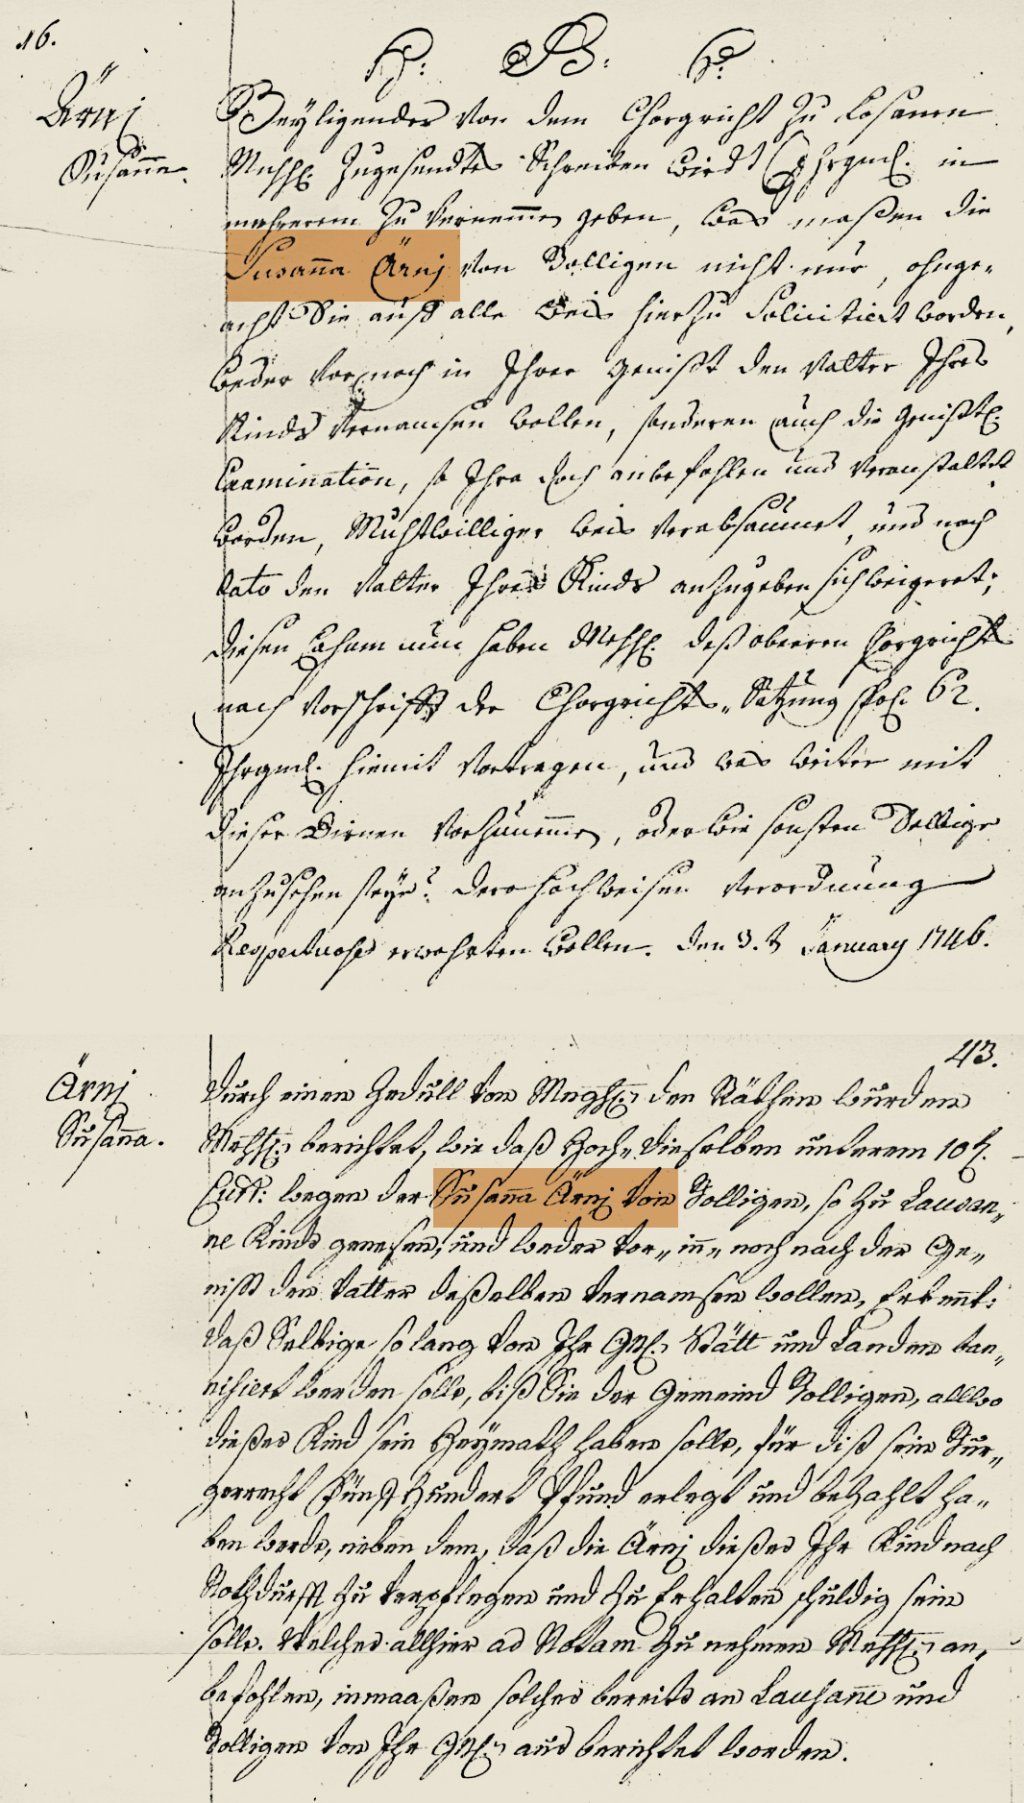 16.
H. B. H.
Ärnj
Susanna.
Beyligendes von dem Chorgricht zu Losanen
MnhH. zugesendtes Schreiben wird Ihrgnd. in
mehrerem zu vernemmen geben, was maßen die
Susanna Ärnj von Bolligen nicht nur, ohnge-
acht Sie auff alle Weis hierzu solicitiert worden,
weder vor, noch in Ihrer Genist den Vatter Ihres
Kinds vernamsen wollen, sonderen auch die Genistl.
Examination, so Ihra doch anbefohlen und veranstaltet
worden, Muhtwilliger Weis verabsäumet, und noch
dato den Vatter Ihres Kinds anzugeben sich weigeret;
diesen nun haben MehH. deß oberen Chorgrichts
nach Vorschrifft der Chorgrichts-Satzung fol. 62.
Ihrgnd. hiemit vortragen, und was weiter mit
dieser Dirnen vorzunemmen, oder wie sonsten Selbige
anzusehen seye? dero hochweisen Verordnung
Respectuose erwahrten wollen. den 3.t January 1746.
43.
Ärnj
Susanna.
Durch einen Zedull von MngHH. den Räthen wurden
MehHH. berichtet, wie daß Hoch-dieselben underem 10t.
Curr: wegen der Susanna Ärnj von Bolligen, so zu Lausan-
ne Kinds genesen, und weder vor- in- noch nach der Ge-
nist den Vatter deßelben vernamsen wollen, Erkennt:
daß Selbige so lang von Ihr Gn. Stätt und Landen ban-
nisiert werden solle, biß Sie der Gemeind Bolligen, allwo
dießes Kind sein Heymath haben solle, für diß sein Bur-
gerrecht Fünff Hundert Pfund erlegt und bezahlt ha-
ben werde, neben dem, daß die Ärnj dießes Ihr Kind nach
Nothdurfft zu verpflegen und zu Erhalten schuldig sein
solle. Welches allhier ad Notam zu nehmen MehHH. an-
befohlen, inmaaßen solches bereits an Lausanne und
Bolligen von Ihr Gn. aus berichtet worden.